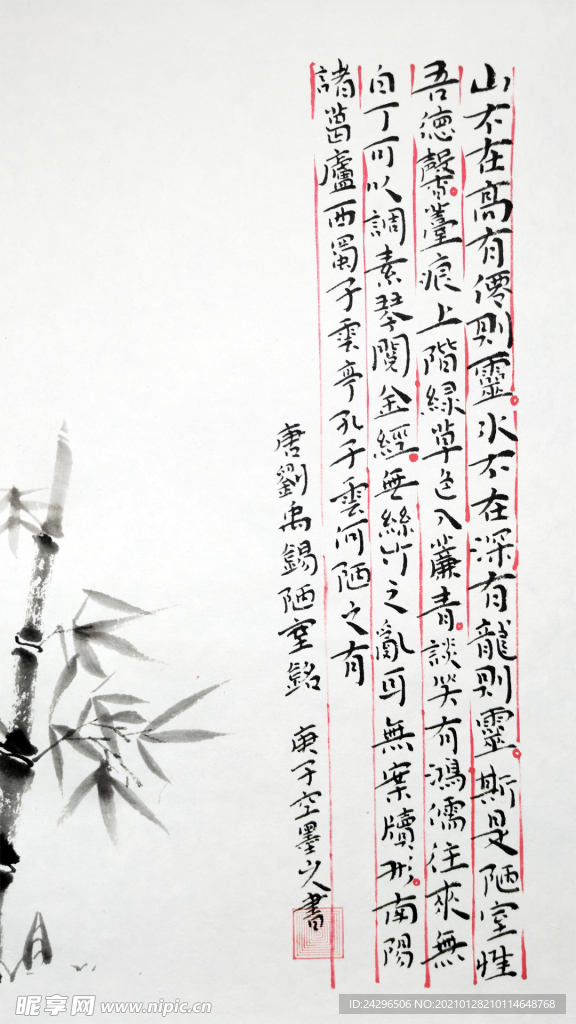 山不在高有僊則靈水不在深有龍則靈斯是陋室性
吾德馨苔痕上階緑草色入簾青談笑有鴻儒往來無
白丁可以調素琴閱金經無絲竹之亂耳無案牘形南陽
諸葛廬西蜀子雲亭孔子雲何陋之有
唐劉禹錫陋室銘 庚子空墨 書
昵享网 www.nipic.cn
ID:24296506 NO:20210128210114648768